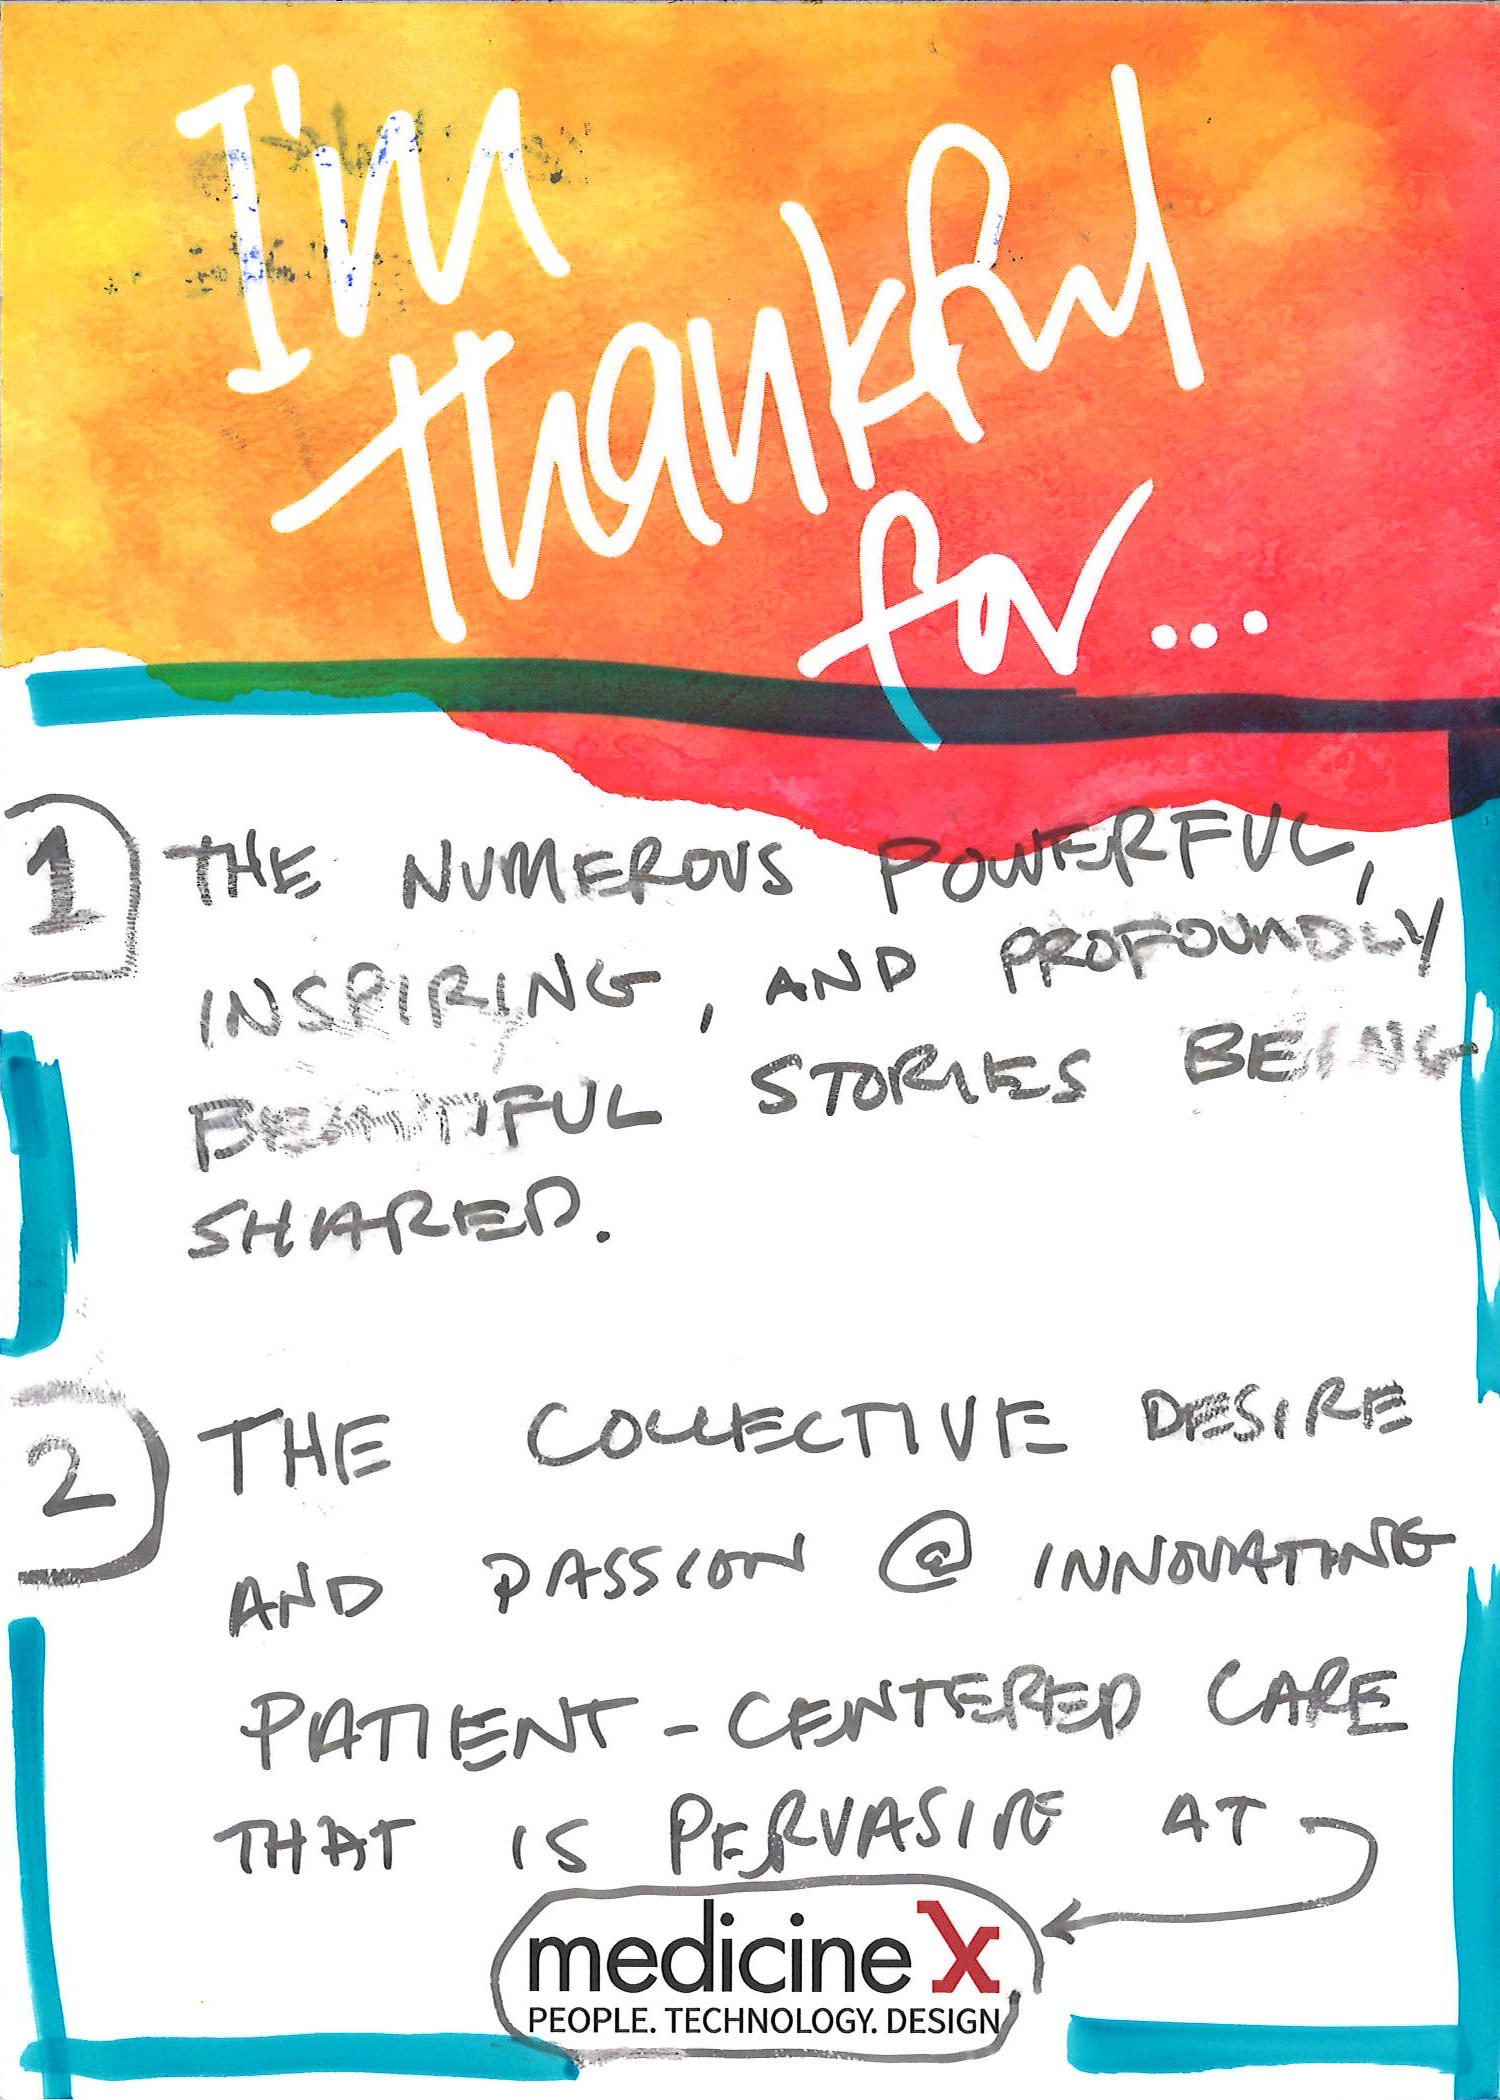 I'm
thankful
for...
1 THE NUMEROUS POWERFUL,
INSPIRING, AND PROFOUNDLY
BEAUTIFUL STORIES BEING
SHARED.
2 THE COLLECTIVE DESIRE
AND PASSION @ INNOVATING
PATIENT-CENTERED CARE
THAT IS PERVASIVE AT
medicine X
PEOPLE. TECHNOLOGY. DESIGN